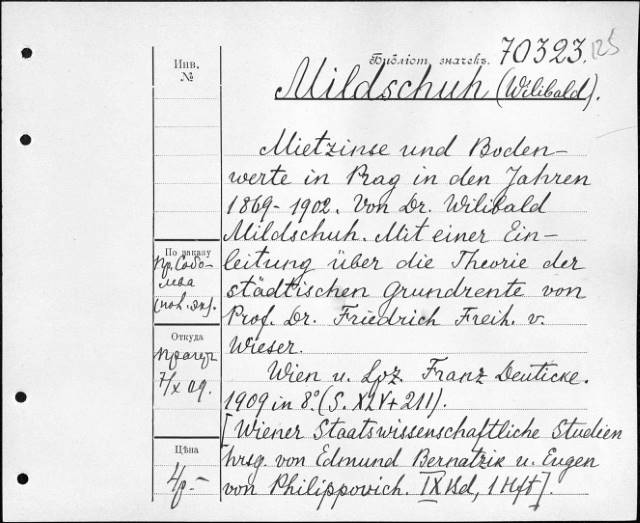 Инв.
№
Библіот. значекъ. 70323. 125
Mildschuh (Wilibald).
Mietzinse und Boden-
werte in Prag in den Jahren
1869-1902. Von Dr. Wilibald
Mildschuh. Mit einer Ein-
leitung über die Theorie der
städtischen Grundrente von
Prof. Dr. Friedrich Freih. v.
Wieser.
Wien u. Lpz. Franz Deuticke.
1909 in 8º. (S. XLV+211).
[Wiener Staatswissenschaftliche Studien
hrsg. von Edmund Bernatzik u. Eugen
von Philippovich. IX Bd, 1 Hft].
По заказу
пр. Собо-
лева
Откуда
7/X 09.
Цѣна
4р.-